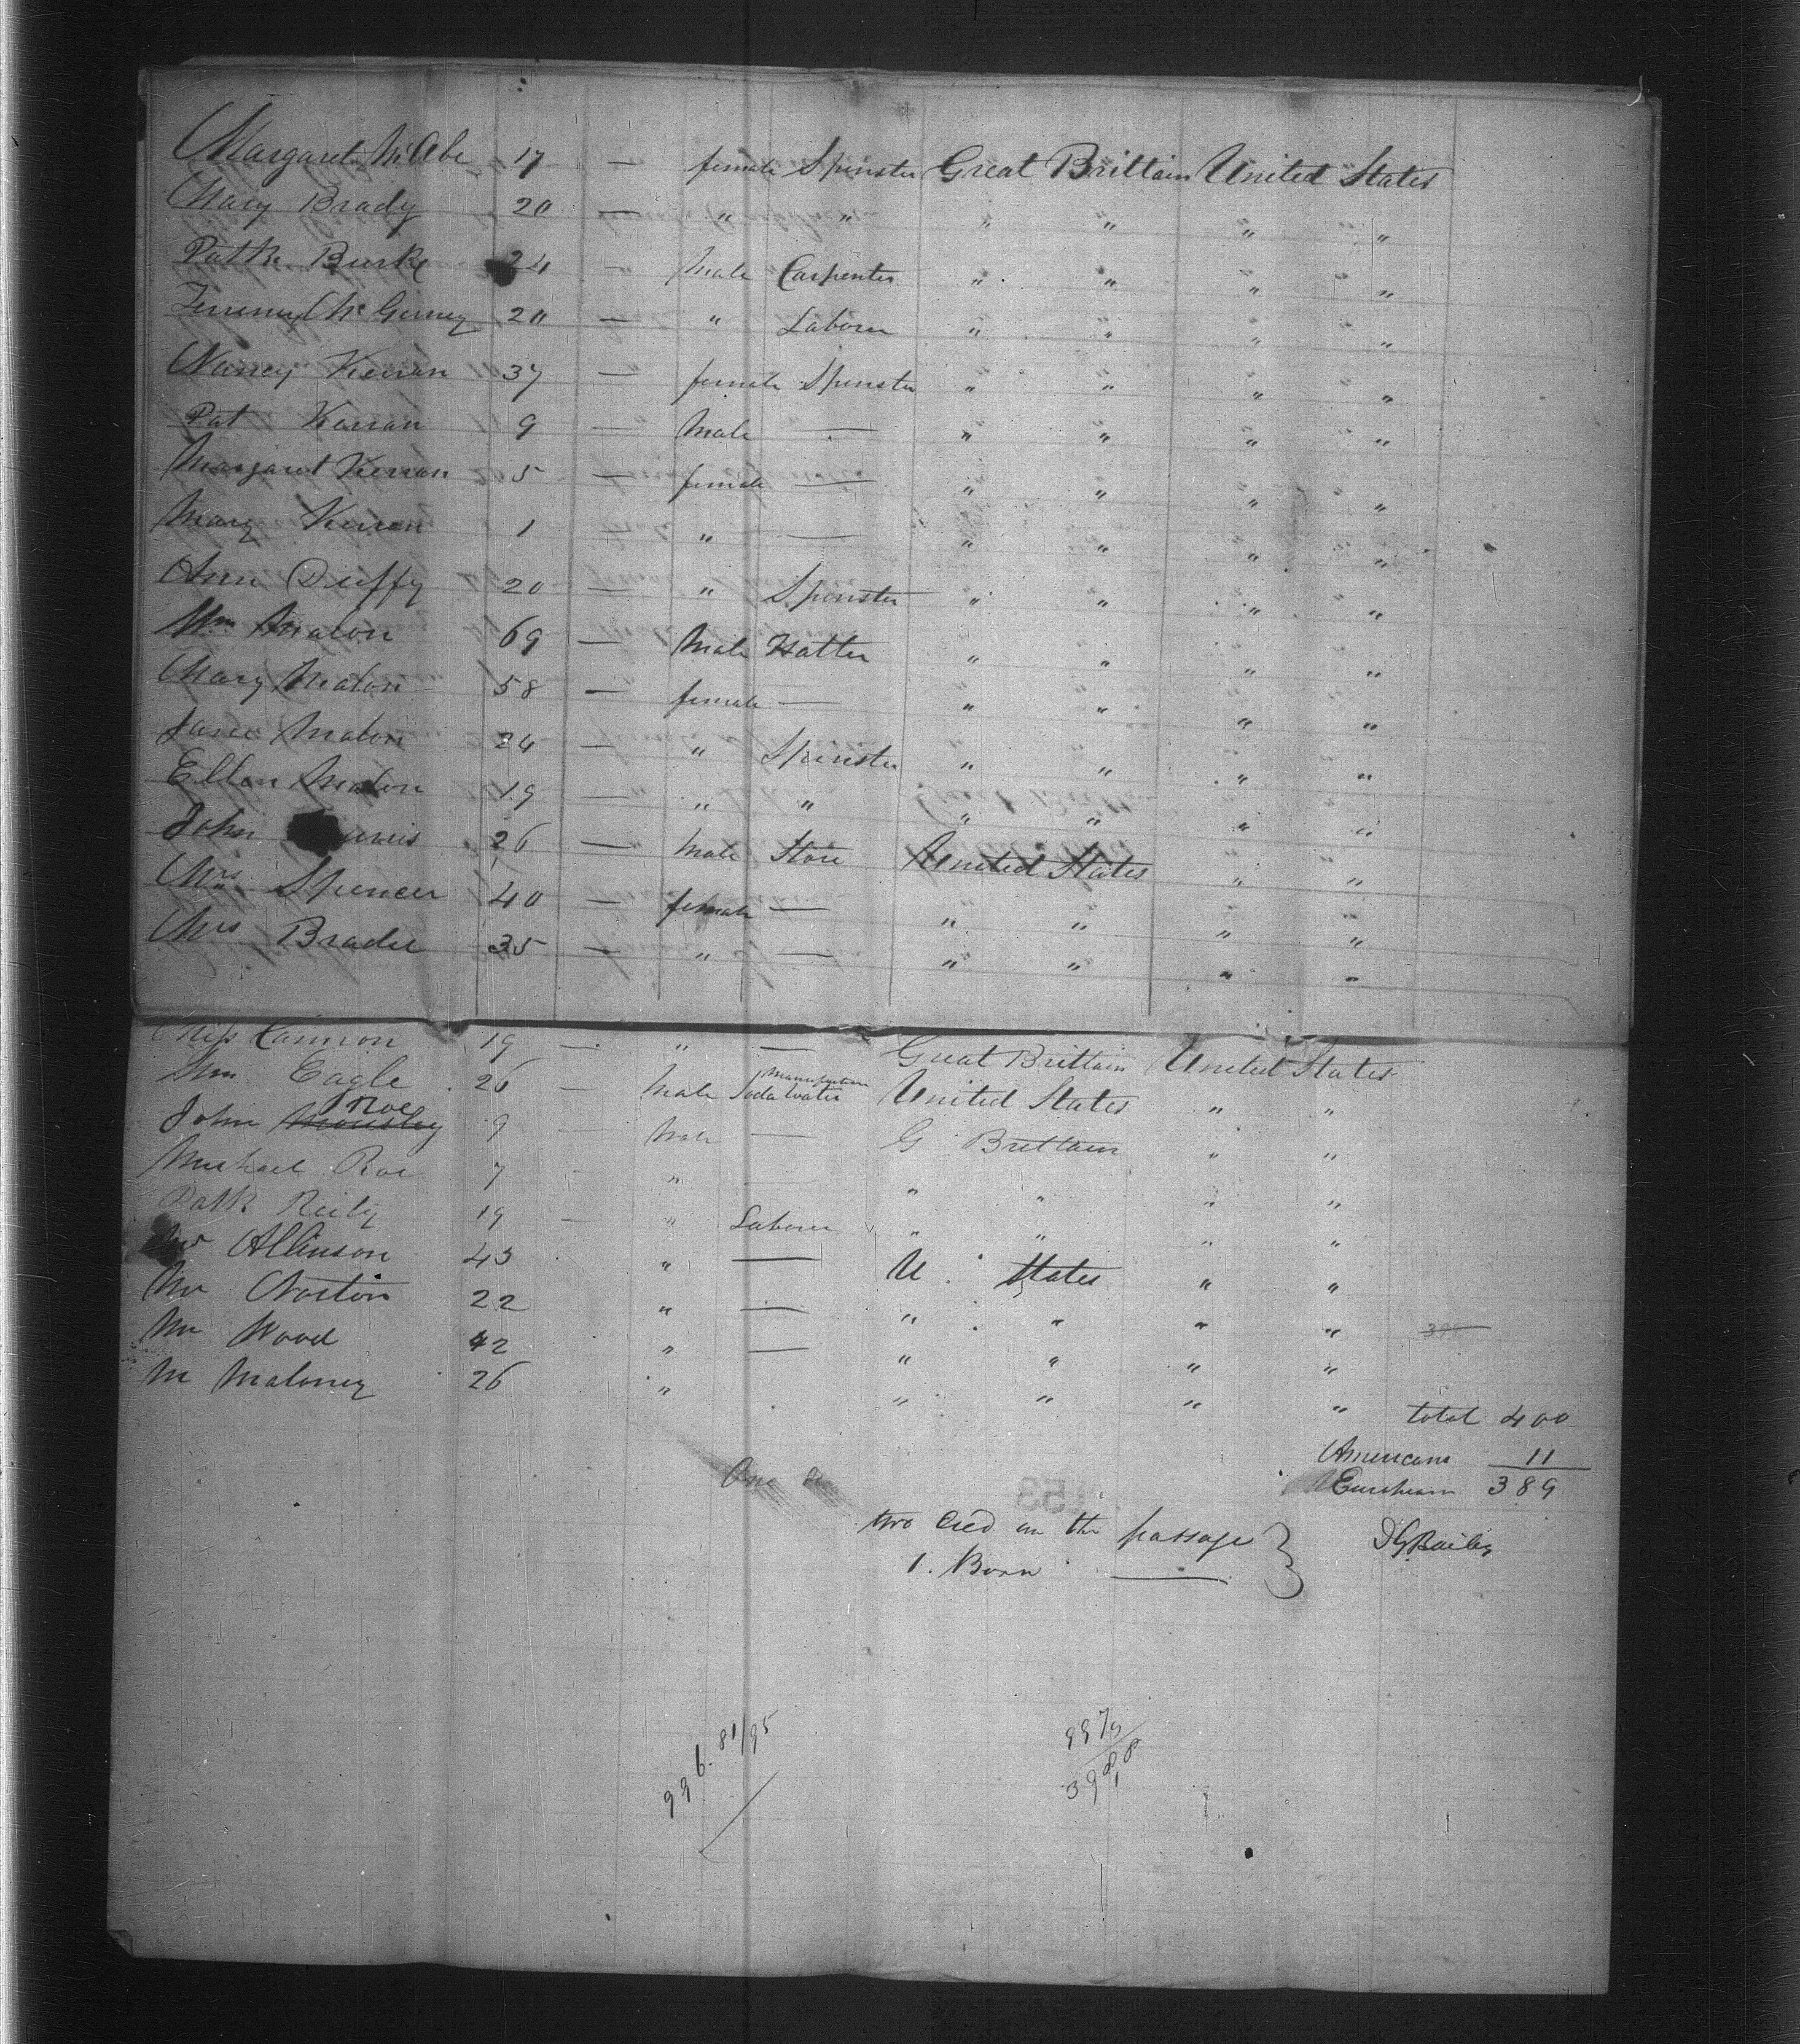 Margaret McAbe 17 — female Spinster Great Brittain United States
Mary Brady 20 — " " " " " "
Patk Burke 24 — Male Carpenter " " " "
McGerney 20 — " Laborer " " " "
Nancy Kerran 37 — female Spinster " " " "
Pat Kerran 9 — Male — " " " "
Margaret Kerran 5 — female — " " " "
Mary Kerran 1 " — " " " "
Ann Duffy 20 — " Spinster " " " "
Wm Malon 69 — Male Hatter " " " "
Mary Malon 58 — female — " " " "
Jane Malon 24 — " Spinster " " " "
Ellen Malon 19 — " " " " " "
John 26 — Male Store United States " "
Mrs Spencer 40 — female — " " " "
Mrs Bradee 35 — " — " " " "
Miss Cannon 19 — " — Great Brittain United States
Wm Eagle 26 — Male Soda water United States " "
John Roe 9 — Male — G Brittain " "
Michael Roe 7 — " — " " " "
Patk Reily 19 — " Laborer " " " "
Mr Atkinson 43 " — U States " "
Mr Norton 22 " — " " " "
Mr Wood 42 " — " " " "
M Maloney 26 " " " " "
total 400
Americans 11
Europeans 389
One
153
two died on the passage
1. Born —
D G Bailey
996. 81/95
997
398